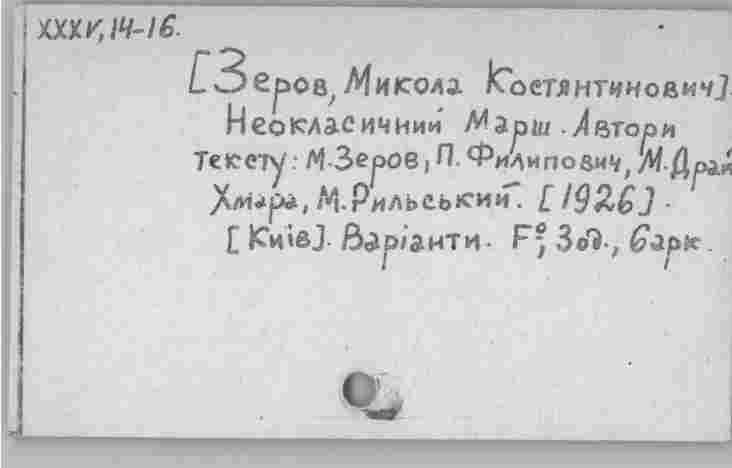 XXXV, 14-16.
[Зеров, Микола Костянтинович].
Неокласичний Марш. Автори
тексту: М. Зеров, П. Филипович, М. Драй
Хмара, М. Рильський. [1926].
[Київ]. Варіанти. F°, 3 од., 6 арк.